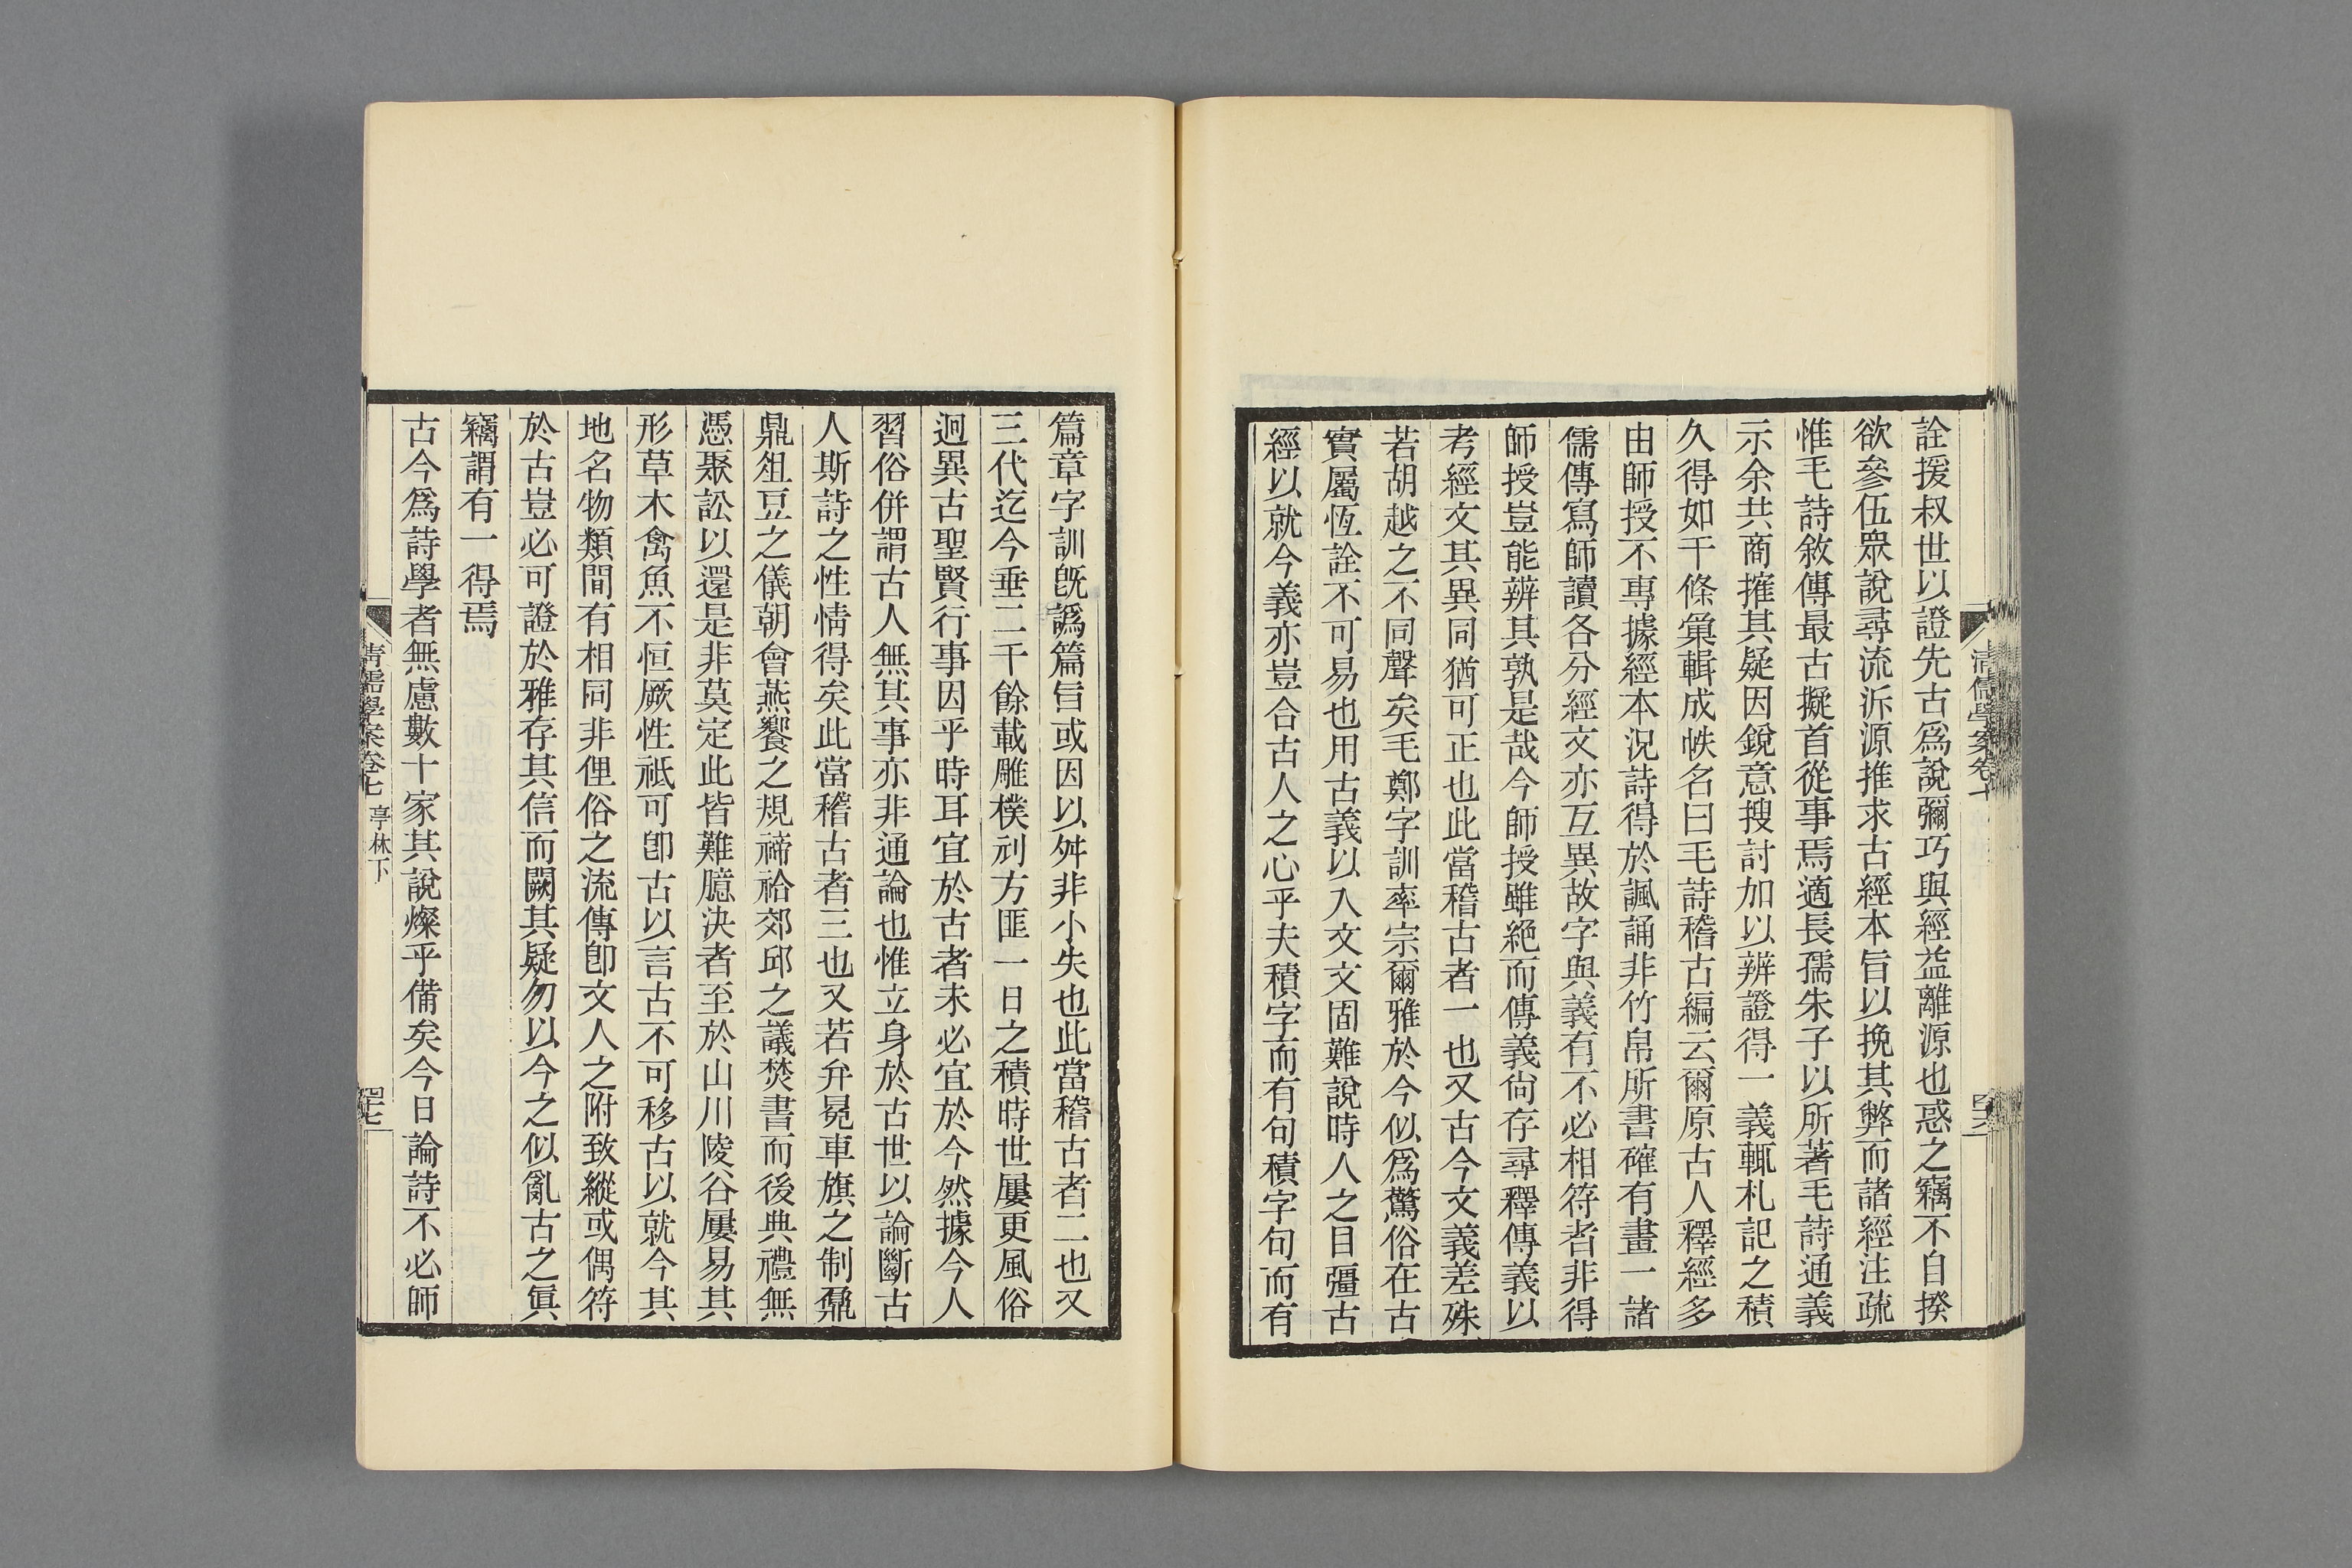 詮援叔世以證先古爲說彌巧與經益離源也惑之竊不自揆
欲參伍眾說尋流泝源推求古經本旨以挽其弊而諸經注疏
惟毛詩敘傳最古擬首從事焉適長孺朱子以所著毛詩通義
示余共商搉其疑因銳意搜討加以辨證得一義輒札記之積
久得如干條彙輯成帙名曰毛詩稽古編云爾原古人釋經多
由師授不專據經本況詩得於諷誦非竹帛所書確有畫一諸
儒傳寫師讀各分經文亦互異故字與義有不必相符者非得
師授豈能辨其孰是哉今師授雖絕而傳義尙存尋釋傳義以
考經文其異同猶可正也此當稽古者一也又古今文義差殊
若胡越之不同聲矣毛鄭字訓率宗爾雅於今似爲驚俗在古
實屬恆詮不可易也用古義以入文文固難說時人之目彊古
經以就今義亦豈合古人之心乎夫積字而有句積字句而有
清儒學案卷七
篇章字訓旣譌篇旨或因以舛非小失也此當稽古者二也又
三代迄今垂二千餘載雕樸刓方匪一日之積時世屢更風俗
迥異古聖賢行事因乎時耳宜於古者未必宜於今然據今人
習俗併謂古人無其事亦非通論也惟立身於古世以論斷古
人斯詩之性情得矣此當稽古者三也又若弁冕車旗之制鼐
鼎俎豆之儀朝會燕饗之規禘祫郊邱之議焚書而後典禮無
憑聚訟以還是非莫定此皆難臆決者至於山川陵谷屢易其
形草木禽魚不恒厥性祗可卽古以言古不可移古以就今其
地名物類間有相同非俚俗之流傳卽文人之附致縱或偶符
於古豈必可證於雅存其信而闕其疑勿以今之似亂古之眞
竊謂有一得焉
古今爲詩學者無慮數十家其說燦乎備矣今日論詩不必師
清儒學案卷七 亭林下 四七